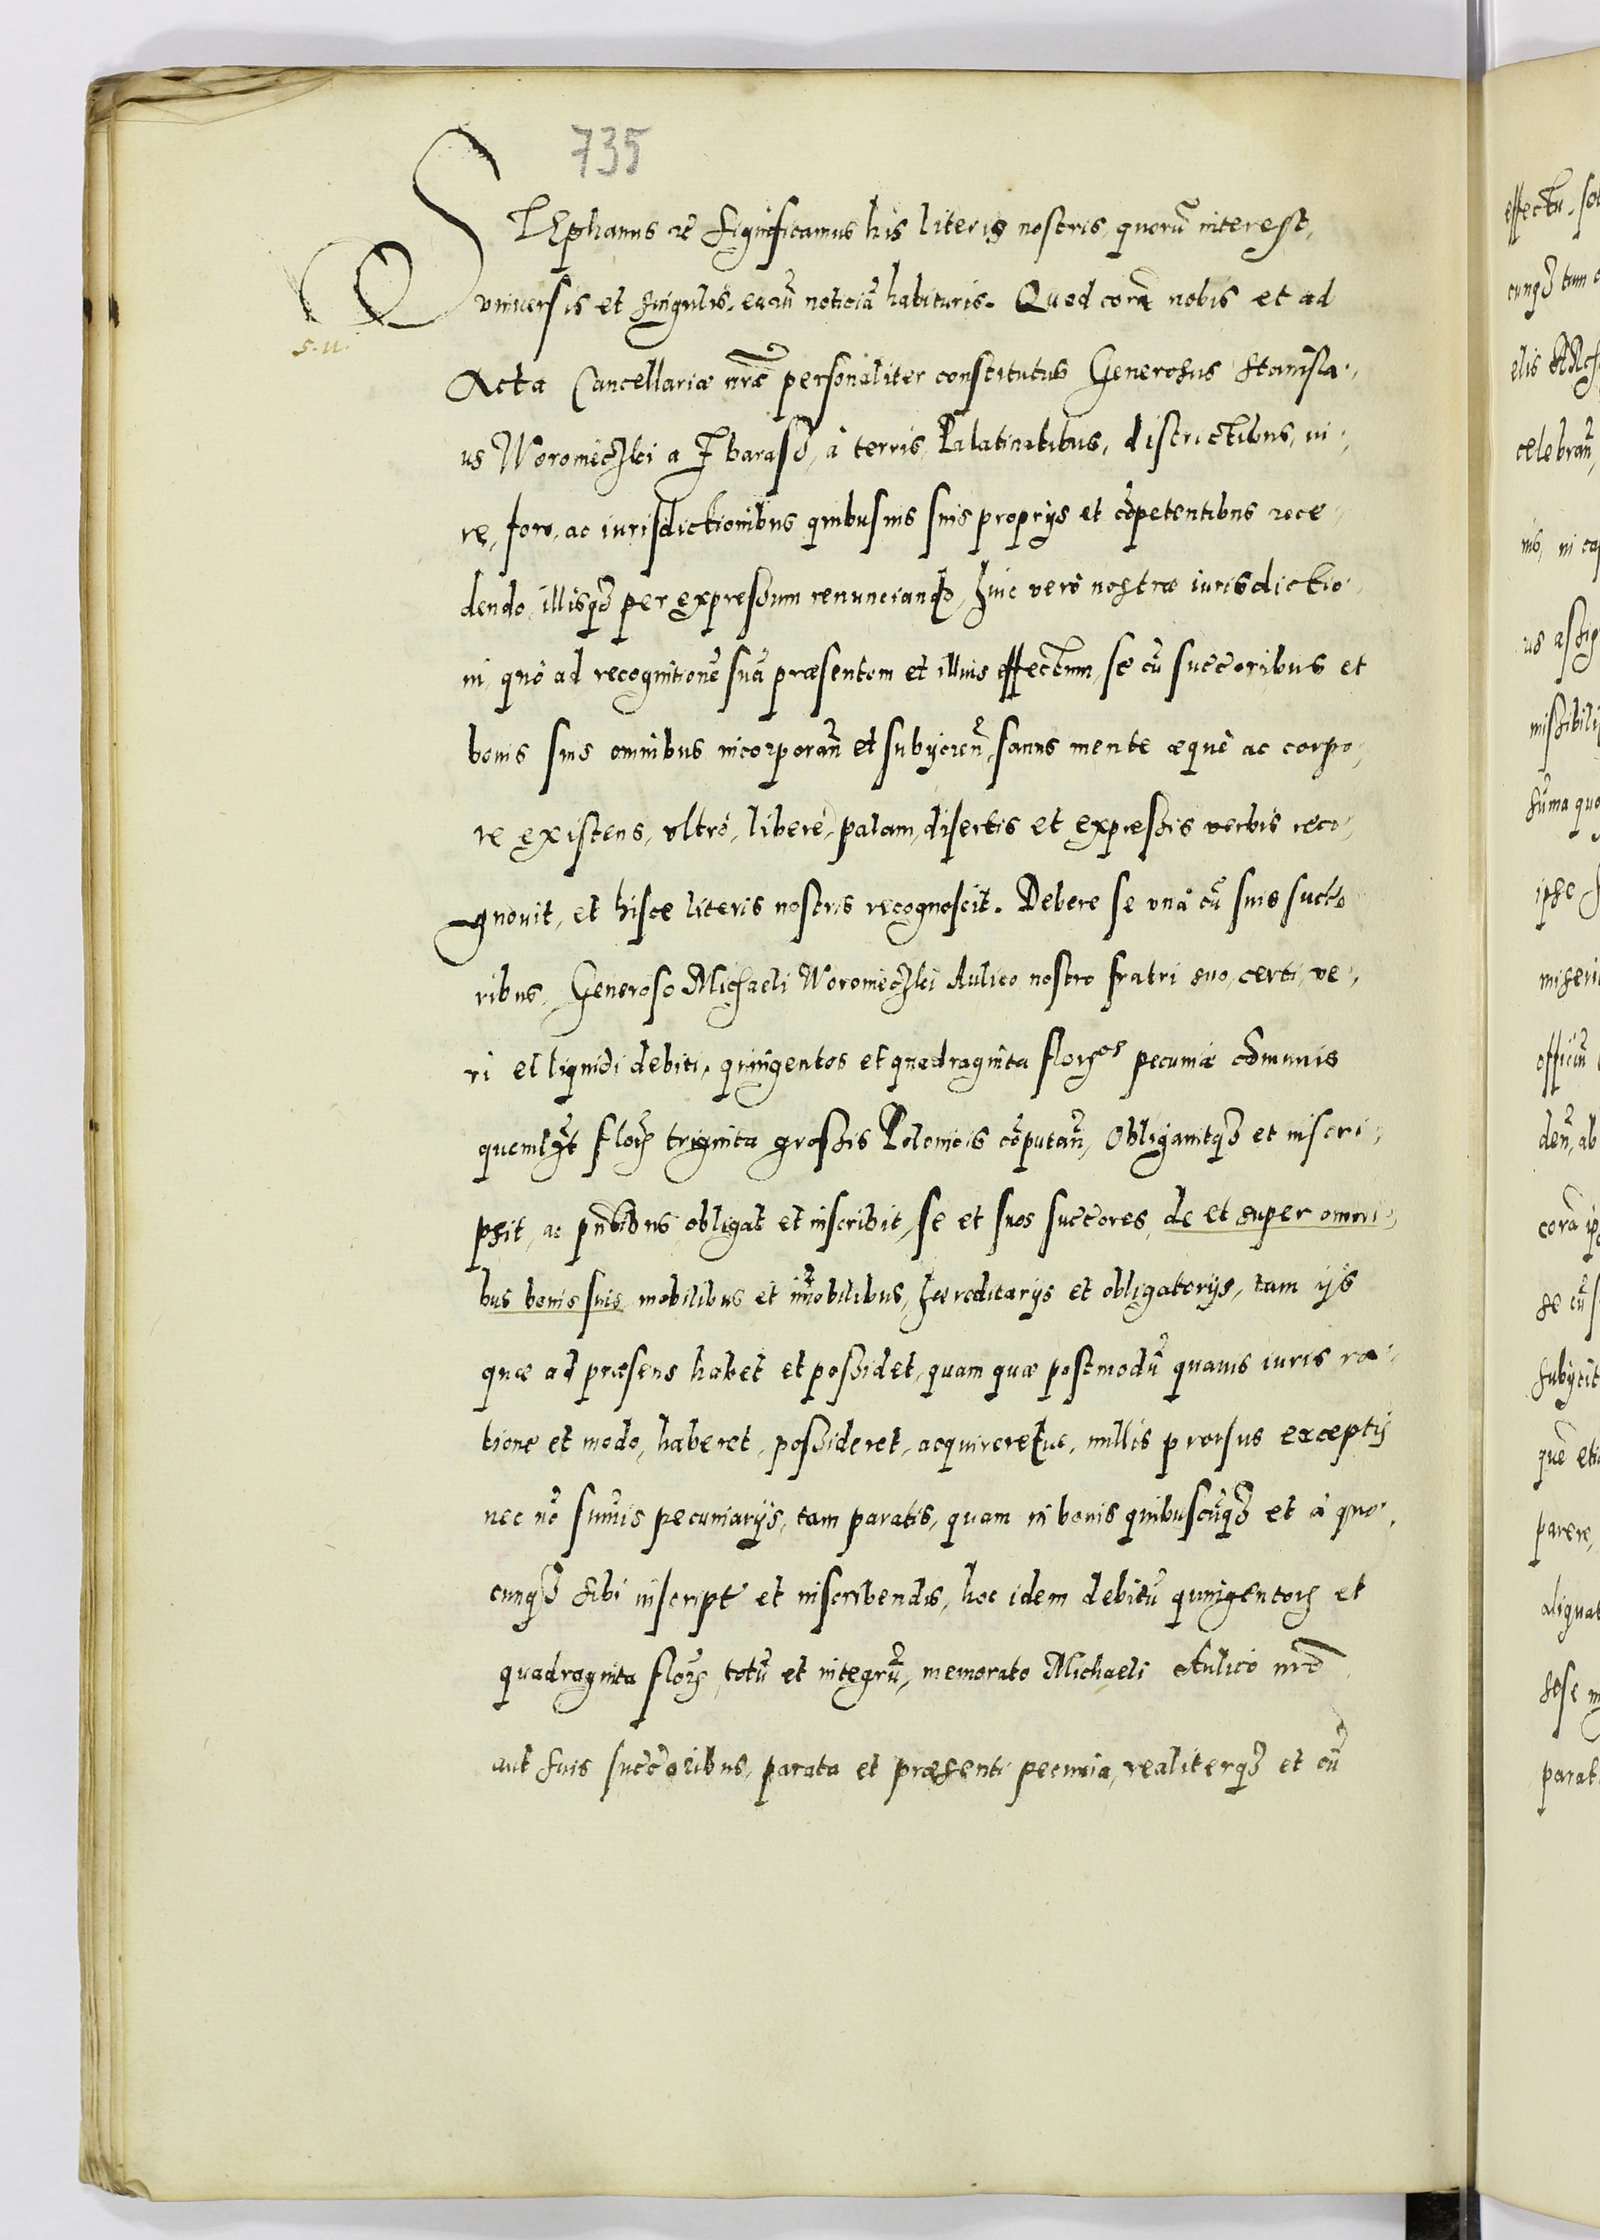 735
STEphanus etc Significamus his literis nostris, quorũ interest,
vniuersis et singulis, earũ noticiã habituris. Quod corã nobis et ad
S. 11.
Acta Cancellariæ nr̃æ personaliter constitutus Generosus Stanisla-
us Woroniec͡zki a Zbaraso, à terris, Palatinatibus, districtibus, iu-
re, foro, ac iurisdictionibus quibusuis suis proprijs et cõpetentibus rece-
dendo, illisq3 per expressum renunciando, huic verò nostræ iurisdictio-
ni, quò ad recognitionẽ suã præsentem et illius effectum, se cũ succ̃oribus et
bonis suis omnibus incorporañ et subijcieñ, sanus mente æquè ac corpo-
re existens, vltrò, liberè, palam, disertis et expressis verbis reco-
gnouit, et hisce literis nostris recognoscit. Debere se vnà cũ suis succ̃o
ribus, Generoso Michaeli Woroniec͡zki Aulico nostro fratri suo, certi, ve-
ri et liquidi debiti, quingentos et quadraginta flor͡os pecuniæ cõmunis
quemlꝫt flor̃ triginta grossis Polonicis cõputañ, Obligauitq3 et inscri-
psit, ac pñtibus obligat et inscribit, se et suos succ̃ores, de et super omni-
bus bonis suis mobilibus et im̃obilibus, hæreditarijs et obligatorijs, tam ijs
quæ ad præsens habet et possidet, quam quæ postmodũ quauis iuris ra-
tione et modo, haberet, possideret, acquireretue, nullis prorsus exceptis
nec nõ sum̃is pecuniarijs, tam paratis, quam in bonis quibuscũq3 et à quo-
cunq3 sibi inscript̃ et inscribendis, hoc idem debitũ quingentorꝫ et
quadraginta florꝫ, totũ et integrũ, memorato Michaeli Aulico nr̃o
aut suis succ̃oribus, parata et præsenti pecunia, realiterq3 et cũ
effectu, sol
cunq3 tam
elis
celebrañ,
us assig
missibili
sum̃a quo
ipse
miseri
officiũ
deñ, ab
corã ip
se cũ s
subijcit
quẽ eti
parere,
aliquat
sese
parat